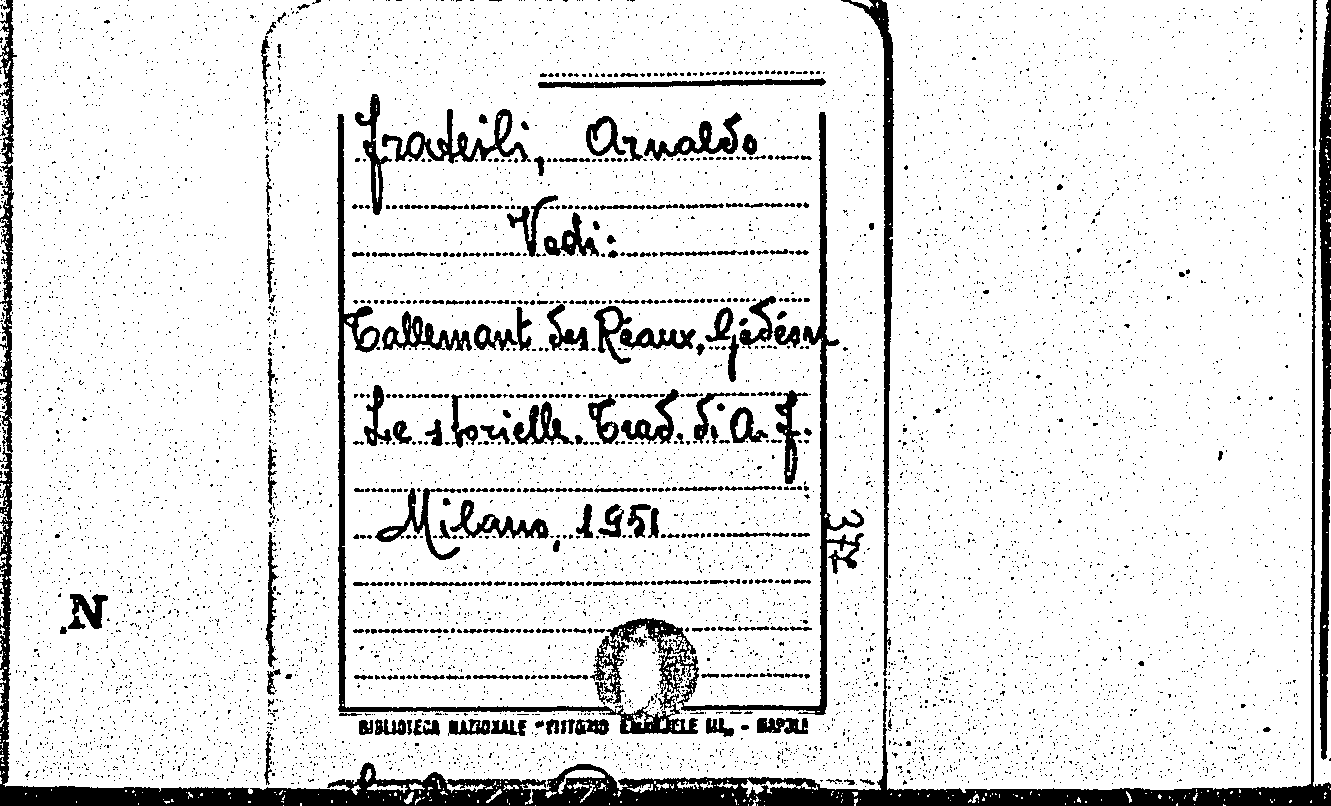 Frateili, Arnaldo
Vedi:
Tallemant des Réaux, Gédéon
Le storielle. Trad. di A. F.
Milano, 1951
372
N
BIBLIOTECA NAZIONALE "VITTORIO EMANUELE III„ - NAPOLI